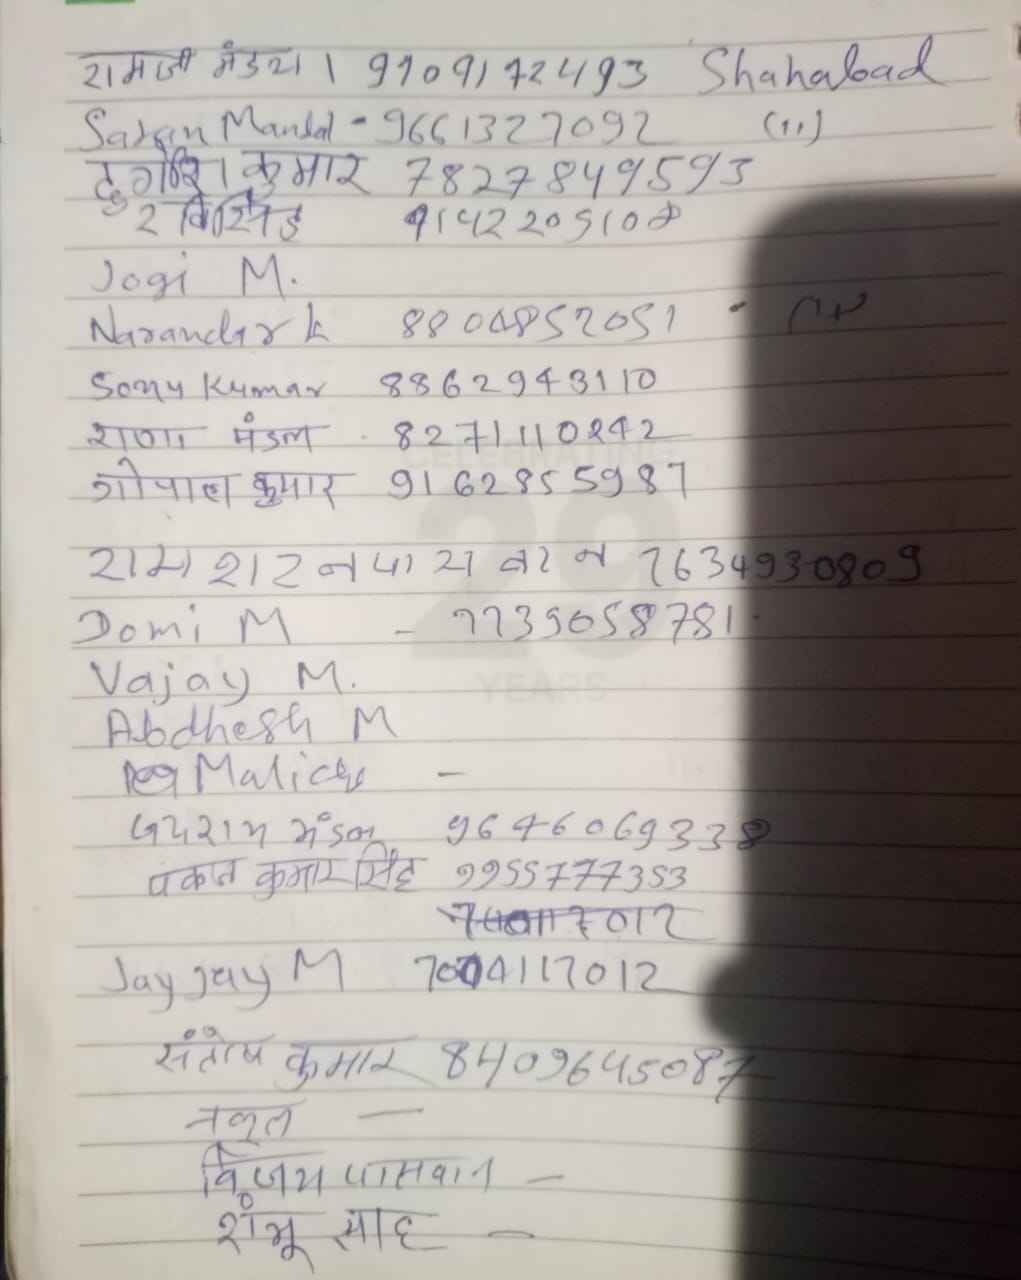 रामजी मंडल । 9909172493 Shahabad
Sajan Mandal - 9661327092 (11)
दुर्गेश कुमार 7827849593
9142205108
Jogi M.
Narandar k 8804852051
Sonu Kumar 8862943110
राणा मंडल 8271110242
गोपाल कुमार 9162855987
CELEBRATING
29
राम शरन पासवान 7634930809
Domi M - 7739058781
YEARS
Vajay M.
Abdhesh M
Malick -
जयराम मंडल 9646069338
पंकज कुमार सिंह 9955777353
Jayjay M 7004117012
संतोष कुमार 8409645087
नकुल -
विजय पासवान -
शंभू साह -